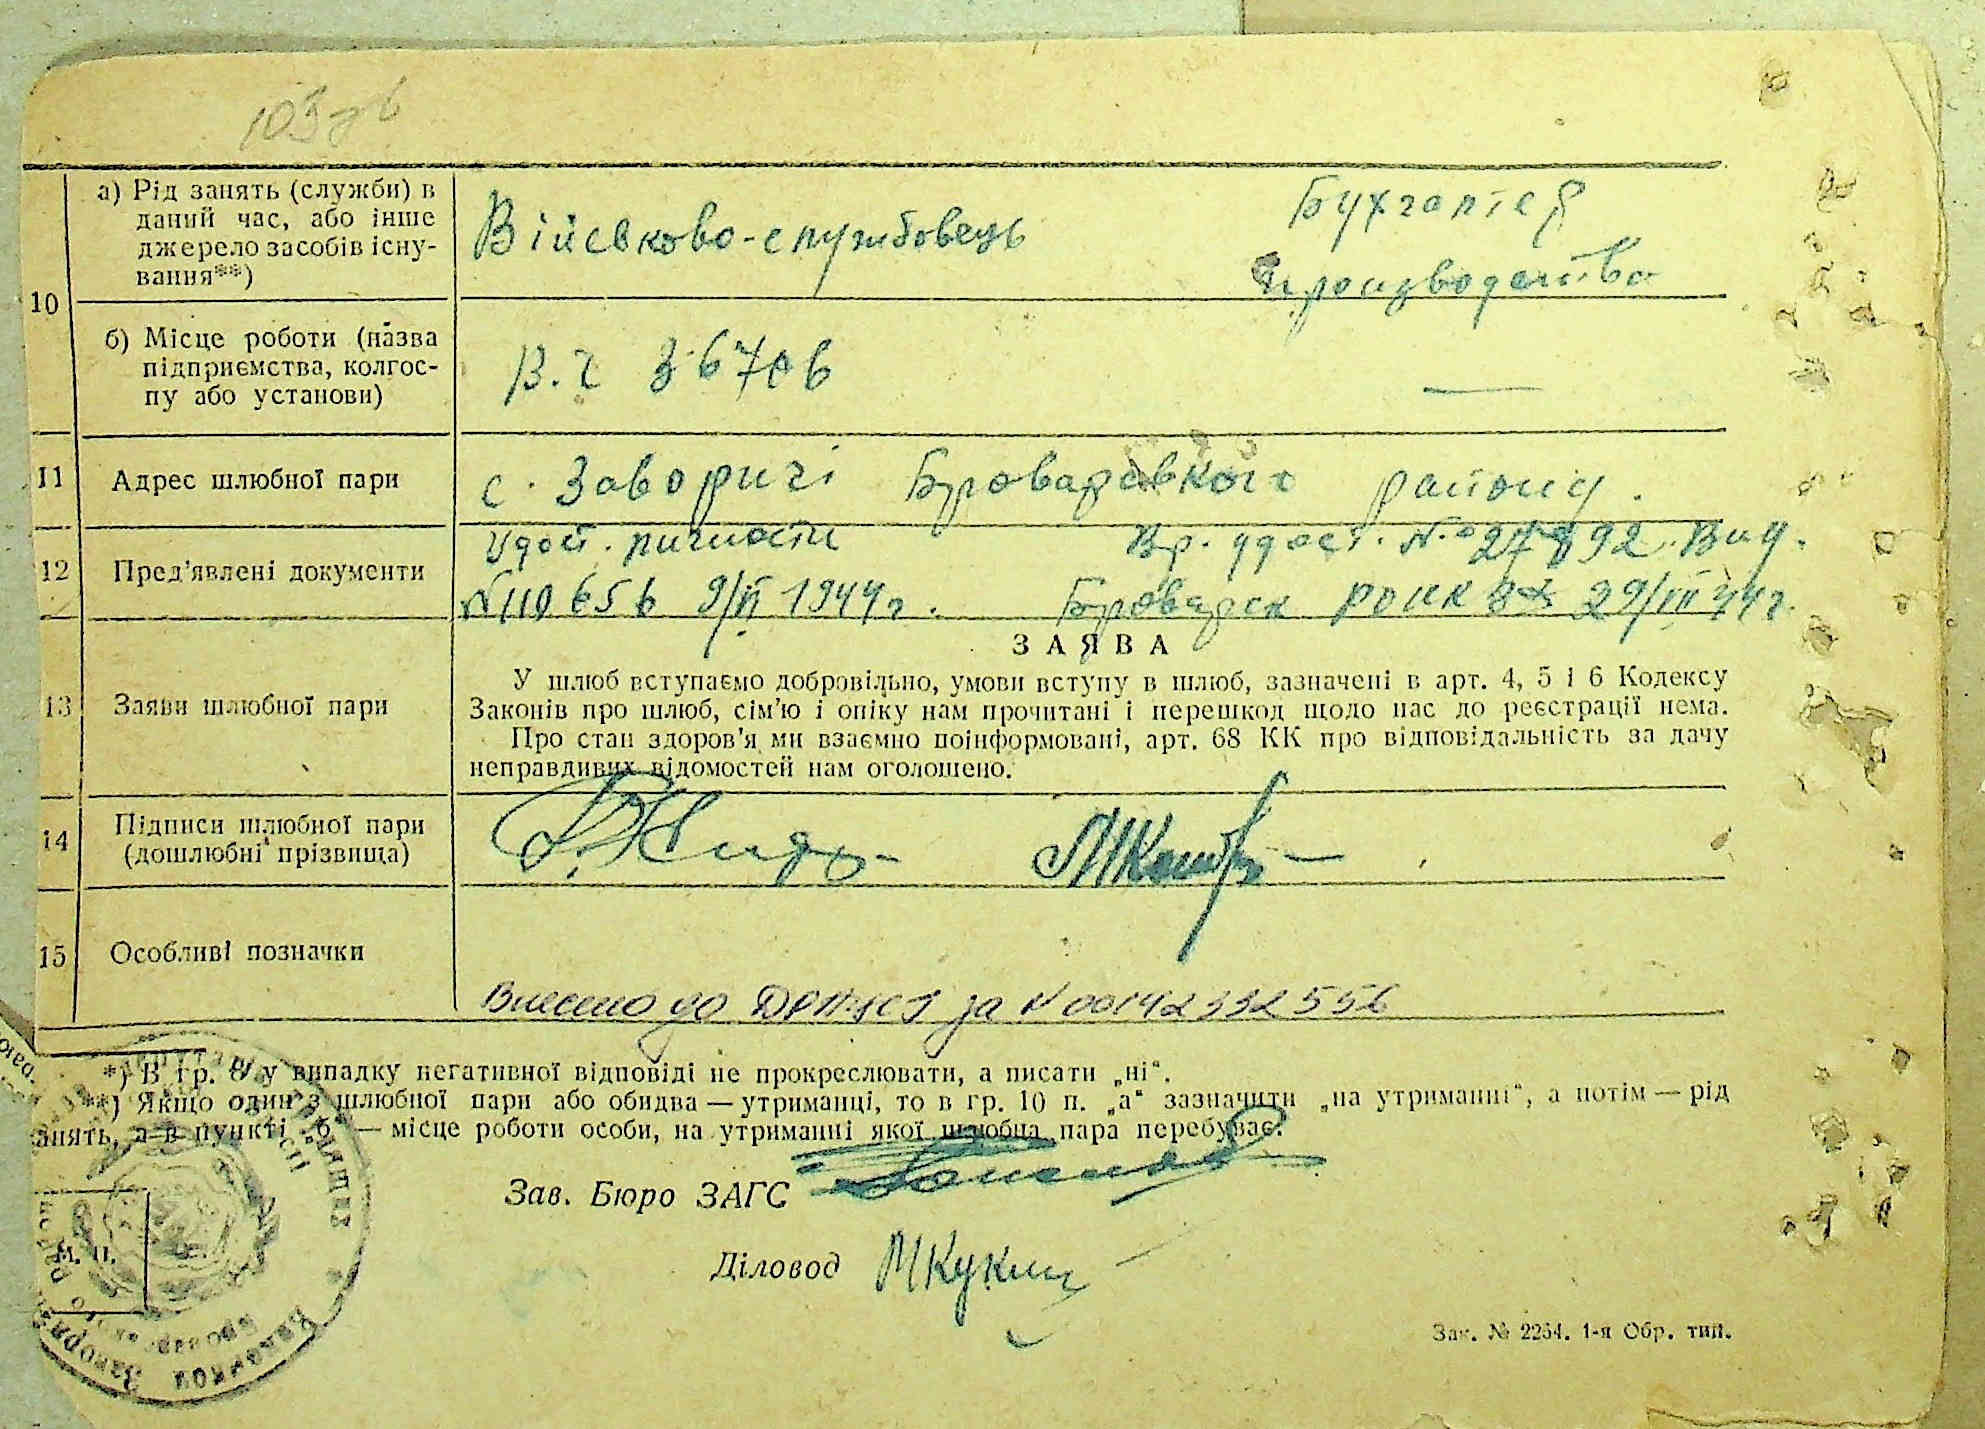 103
а) Рід занять (служби) в
даний час, або інше
джерело засобів існу-
вання**)
Військово-службовець
Бухгалтер
производства
10
б) Місце роботи (назва
підприємства, колгос-
пу або установи)
В.ч 36706
—
11 Адрес шлюбної пари
с. Заворичі Броварського району.
12 Пред'явлені документи
Удост. личности
№110656 9/II 1944г.
Вр. удост. № 27892 Вид.
Броварск 29/III 44г.
ЗАЯВА
13 Заяви шлюбної пари
У шлюб вступаємо добровільно, умови вступу в шлюб, зазначені в арт. 4, 5 і 6 Кодексу
Законів про шлюб, сім'ю і опіку нам прочитані і перешкод щодо нас до реєстрації нема.
Про стан здоров'я ми взаємно поінформовані, арт. 68 КК про відповідальність за дачу
неправдивих відомостей нам оголошено.
14 Підписи шлюбної пари
(дошлюбні прізвища)
15 Особливі позначки
Внесено до за № 00142332556
*) В гр. 8 у випадку негативної відповіді не прокреслювати, а писати „ні“.
**) Якщо один з шлюбної пари або обидва — утриманці, то в гр. 10 п. „а“ зазначити „на утриманні“, а потім — рід
анять, а в пункті „б“ — місце роботи особи, на утриманні якої шлюбна пара перебуває.
Зав. Бюро ЗАГС
М. П.
Діловод МКукин
Зак. № 2254. 1-я Обр. тип.